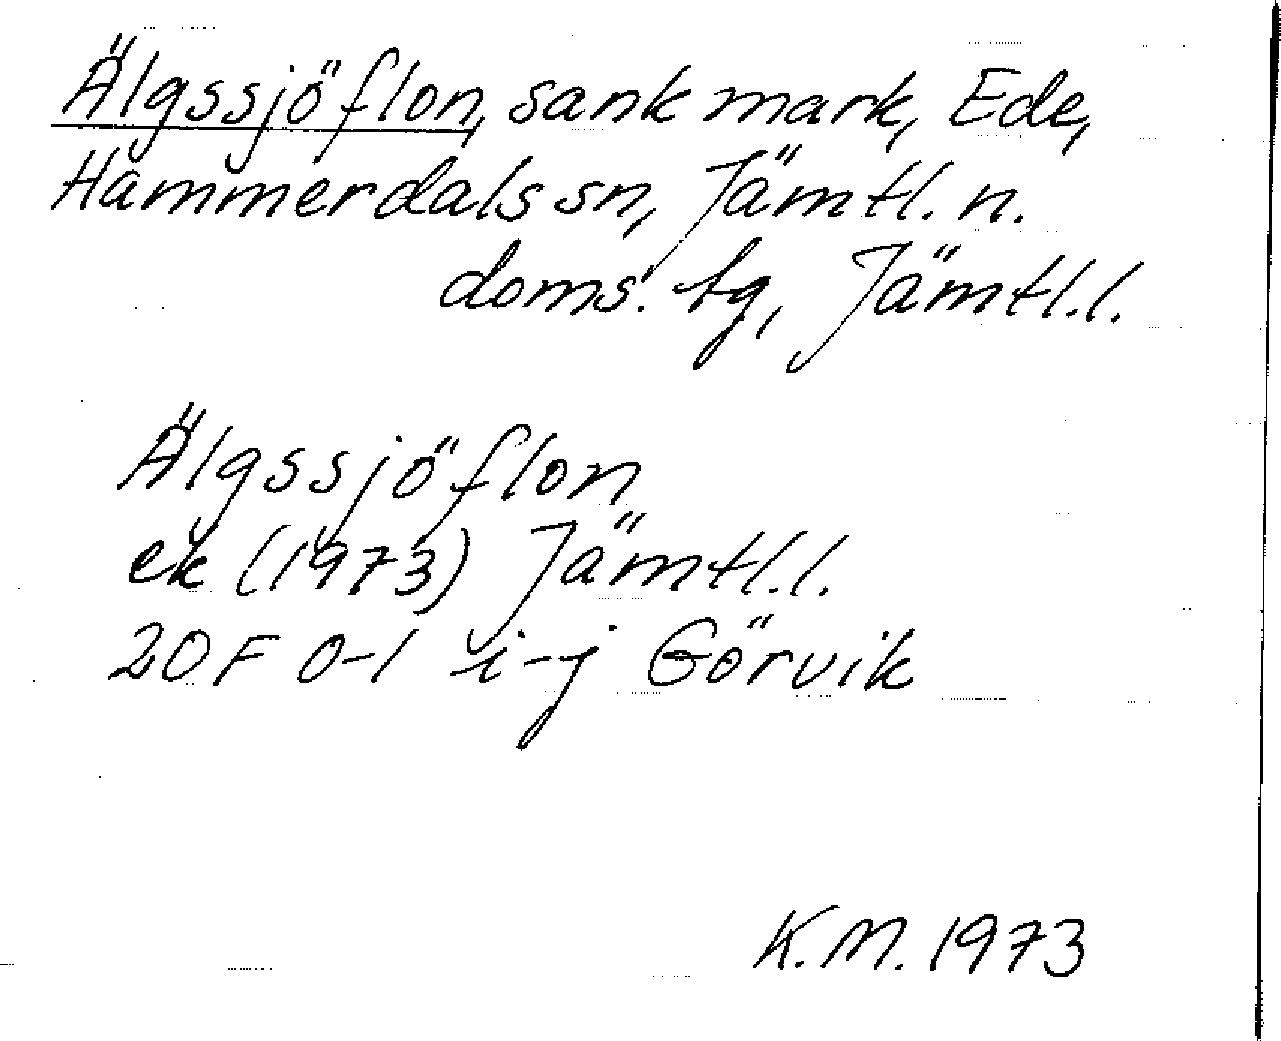 Älgssjöflon, sank mark, Ede,
Hammerdals sn, Jämtl. n.
doms. tg, Jämtl.l.
Älgssjöflon
ek (1973) Jämtl.l.
20F 0-1 i-j Görvik
K.M. 1973